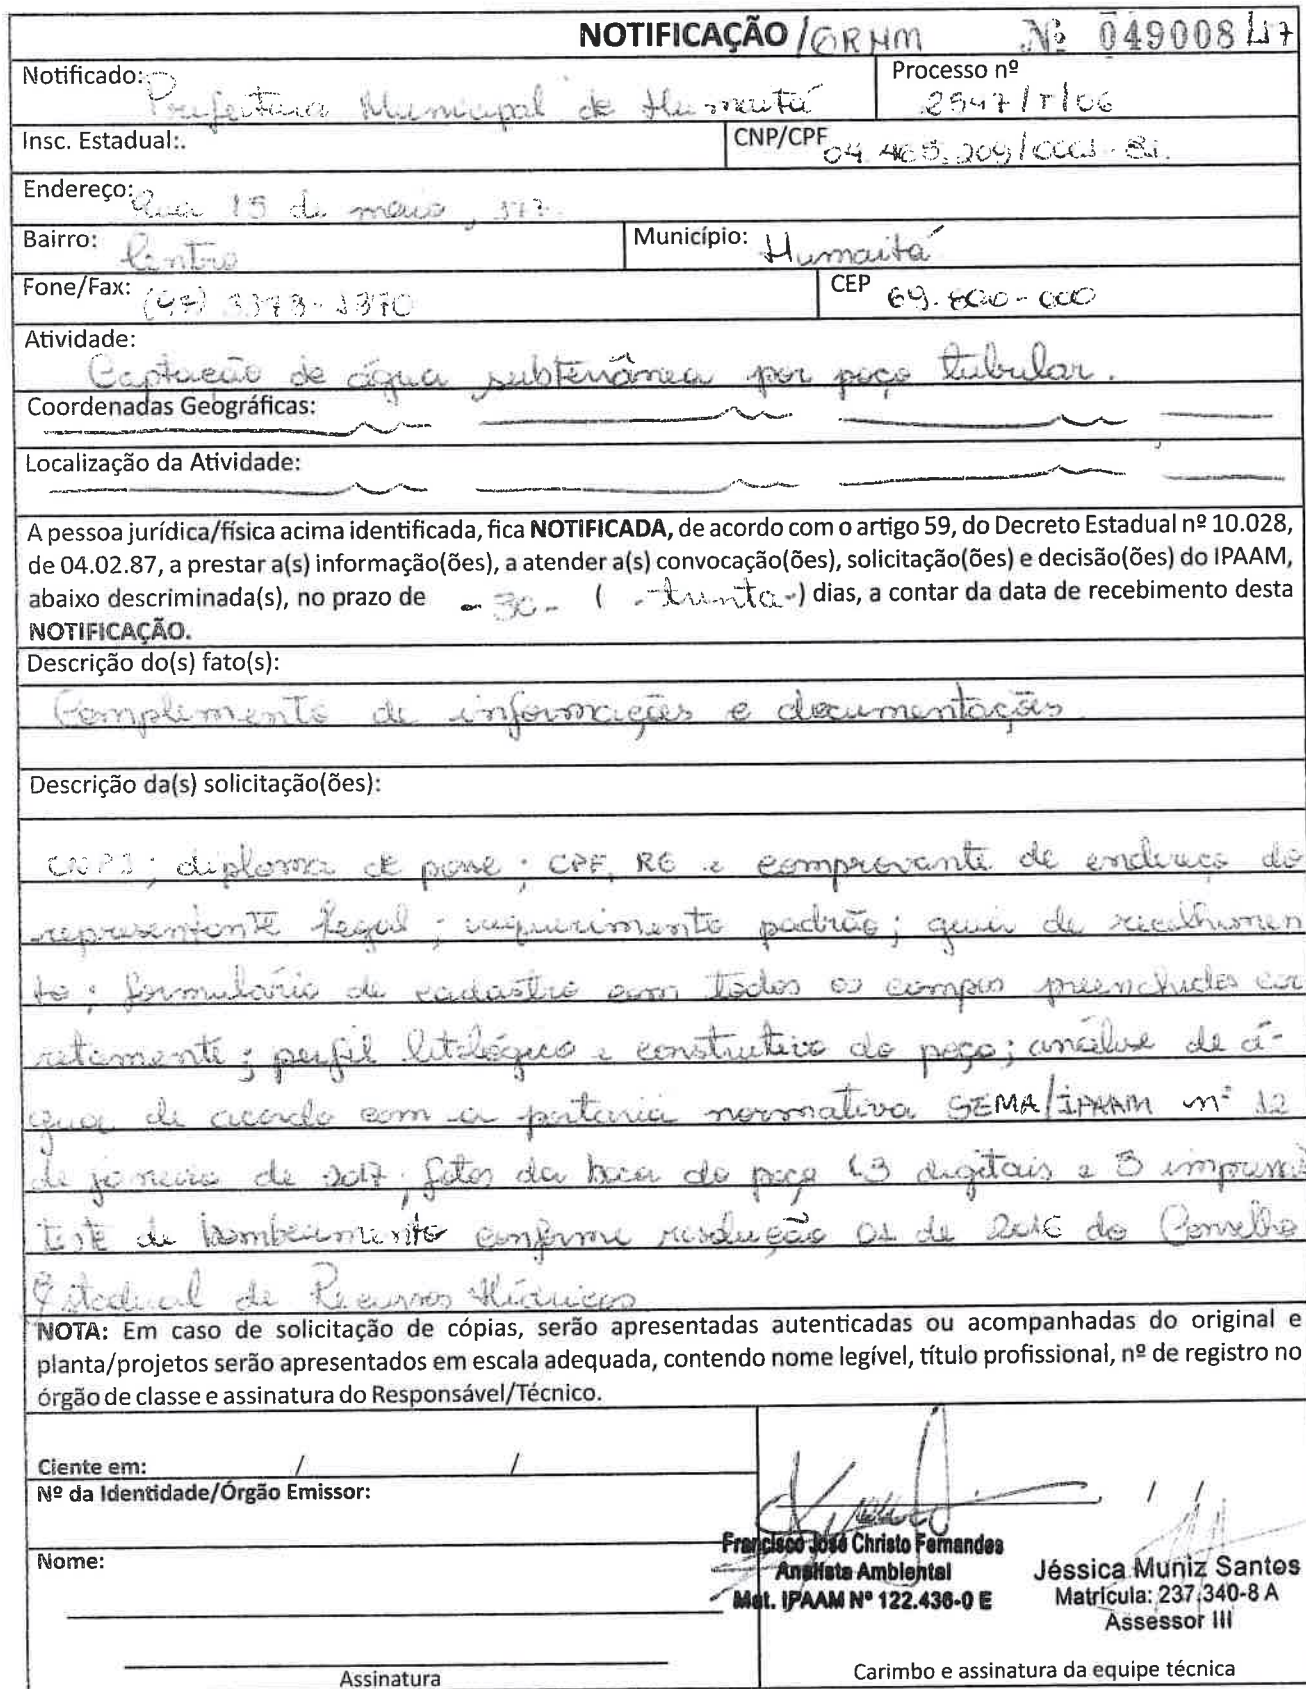 NOTIFICAÇÃO /GRHM Nº 049008 /17
Notificado: Prefeitura Municipal de Humaitá
Processo nº 2547/T/06
Insc. Estadual:.
CNP/CPF 04.465.209/0001-81.
Endereço: Rua 15 de maio,
Bairro: Centro
Município: Humaitá
Fone/Fax: (97) 3373-
CEP 69.800-000
Atividade:
Captação de água subterrânea por poço tubular.
Coordenadas Geográficas:
Localização da Atividade:
A pessoa jurídica/física acima identificada, fica NOTIFICADA, de acordo com o artigo 59, do Decreto Estadual nº 10.028,
de 04.02.87, a prestar a(s) informação(ões), a atender a(s) convocação(ões), solicitação(ões) e decisão(ões) do IPAAM,
abaixo descriminada(s), no prazo de - 30 - ( - trinta -) dias, a contar da data de recebimento desta
NOTIFICAÇÃO.
Descrição do(s) fato(s):
Complemento de informações e documentações
Descrição da(s) solicitação(ões):
CNPJ; diploma de posse; CPF, RG e comprovante de endereço do
representante legal; requerimento padrão; guia de recolhimen
to; formulário de cadastro com todos os campos preenchidos cor
retamente; perfil litológico e construtivo do poço; análise de á-
gua de acordo com a portaria normativa SEMA/IPAAM nº 12
de janeiro de 2017; fotos da boca do poço (3 digitais e 3 impressas
teste de bombeamento conforme resolução 01 de 2016 do Conselho
Estadual de Recursos Hídricos
NOTA: Em caso de solicitação de cópias, serão apresentadas autenticadas ou acompanhadas do original e
planta/projetos serão apresentados em escala adequada, contendo nome legível, título profissional, nº de registro no
órgão de classe e assinatura do Responsável/Técnico.
Ciente em: / /
Nº da Identidade/Órgão Emissor:
Nome:
Assinatura
Francisco José Christo Fernandes
Analista Ambiental
Mat. IPAAM Nº 122.436-0 E
/ /
Jéssica Muniz Santos
Matrícula: 237.340-8 A
Assessor III
Carimbo e assinatura da equipe técnica